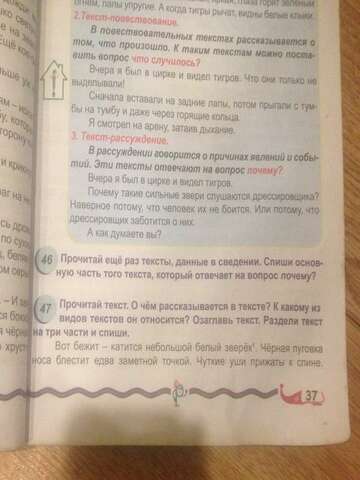 огнём, лапы упругие. А когда тигры рычат, видны белые клыки.
2.Текст-повествование.
В повествовательных текстах рассказывается о
том, что произошло. К таким текстам можно поста-
вить вопрос что случилось?
Вчера я был в цирке и видел тигров. Что они только не
выделывали!
Сначала вставали на задние лапы, потом прыгали с тум-
бы на тумбу и даже через горящие кольца.
Я смотрел на арену, затаив дыхание.
3. Текст-рассуждение.
В рассуждении говорится о причинах явлений и собы-
тий. Эти тексты отвечают на вопрос почему?
Вчера я был в цирке и видел тигров.
Почему такие сильные звери слушаются дрессировщика?
Наверное потому, что человек их не боится. Или потому, что
дрессировщик заботится о них.
А как думаете вы?
46 Прочитай ещё раз тексты, данные в сведении. Спиши основ-
ную часть того текста, который отвечает на вопрос почему?
47 Прочитай текст. О чём рассказывается в тексте? К какому из
видов текстов он относится? Озаглавь текст. Раздели текст
на три части и спиши.
Вот бежит – катится небольшой белый зверёк¹. Чёрная пуговка
носа блестит едва заметной точкой. Чуткие уши прижаты к спине.
37